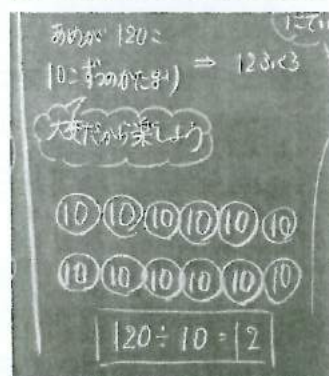 あめが 120こ
10こずつのかたまり ⇒ 12ふくろ
大変だから楽しよう
10 10 10 10 10 10
10 10 10 10 10 10
120÷10=12